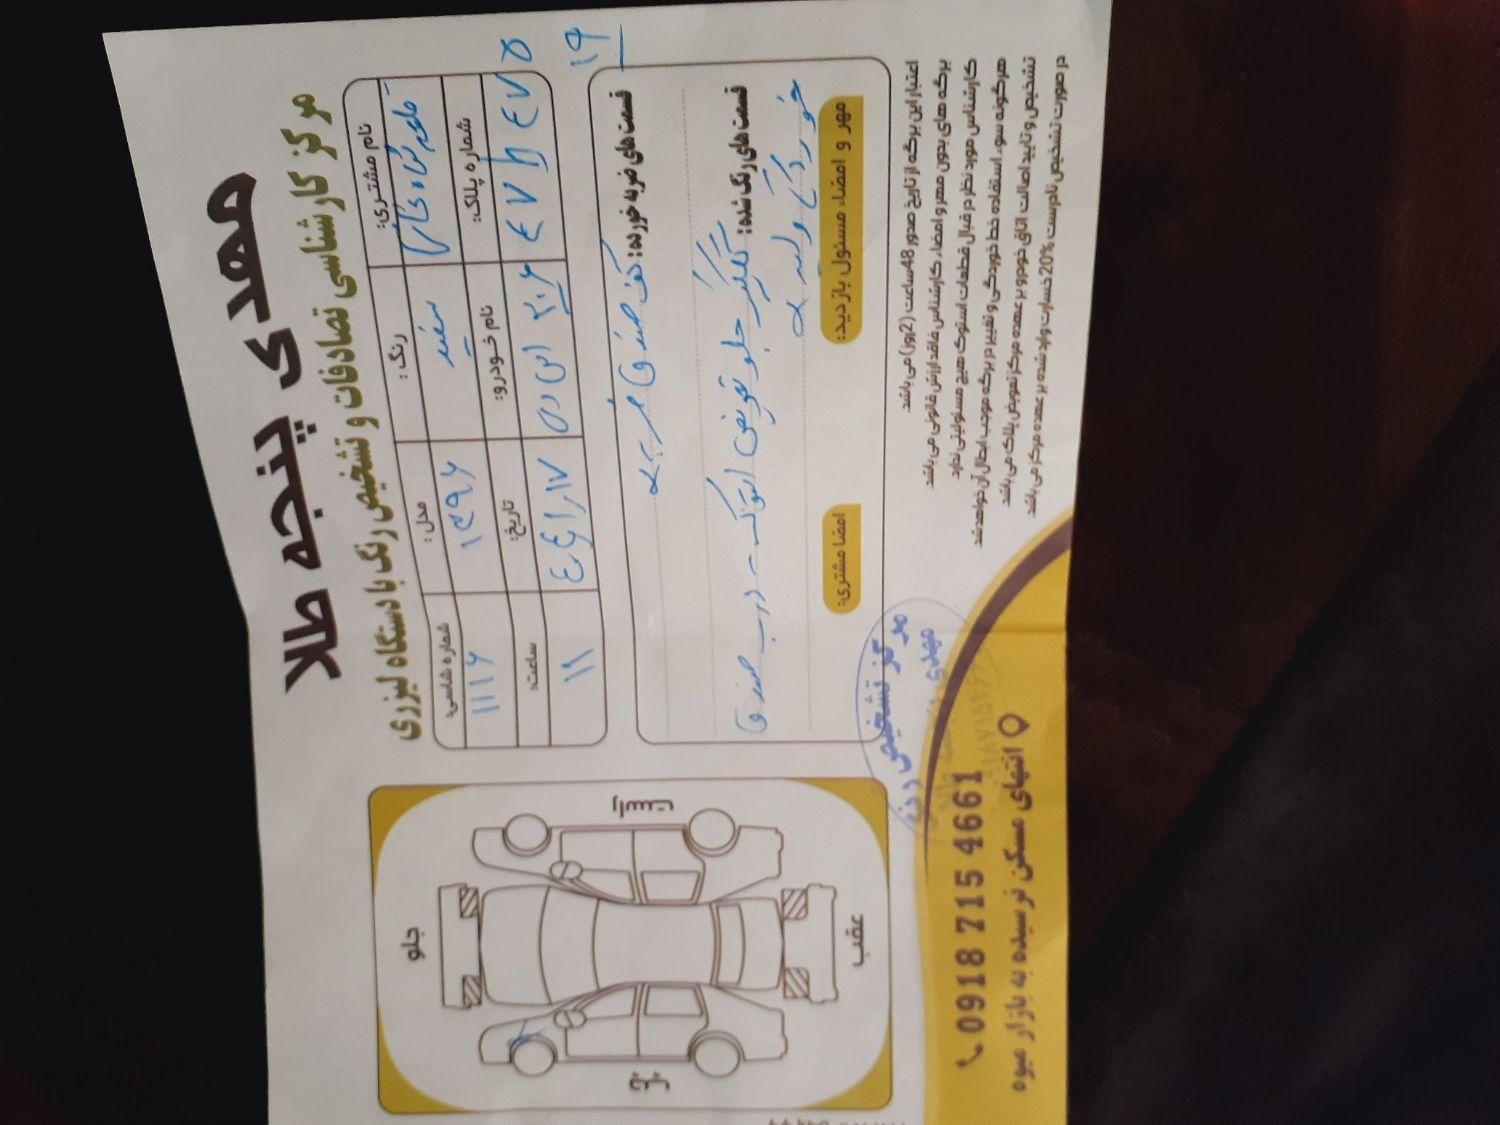 مهدی پنجه طلا
مرکز کارشناسی تصادفات و تشخیص رنگ با دستگاه لیزری
نام مشتری:
رنگ: سفید
مدل: ۱۳۹۶
شماره شاسی: ۱۱۱۶
شماره پلاک: ۴۷ ۴۷۵
۱۹
نام خودرو: ۲۰۶ اس دی
تاریخ:
ساعت: ۱۱
قسمت های ضربه خورده: کف صندوق ضربه
قسمت های رنگ شده: گلگیر جلو تعویض استوک - درب صندوق
خوردگی و لیسه
مهر و امضاء مسئول بازدید:
امضا مشتری:
اعتبار این برگه از تاریخ صدور 48 ساعت (2 روز) می باشد
برگه های بدون مهر و امضاء کارشناس فاقد ارزش قانونی می باشد
کارشناس مورد نظر در قبال قطعات استوک هیچ مسئولیتی ندارد
هرگونه سوء استفاده خط خوردگی و تغییر در برگه موجب ابطال آن خواهد شد
تشخیص و تایید اصالت اتاق خودرو بر عهده مرکز تعویض پلاک می باشد
در صورت تشخیص نادرست 20% خسارت وارد شده بر عهده مرکز می باشد
جلو
عقب
مرکز تشخیص رنگ
مهدی
0918 715 4661
انتهای مسکن نرسیده به بازار میوه